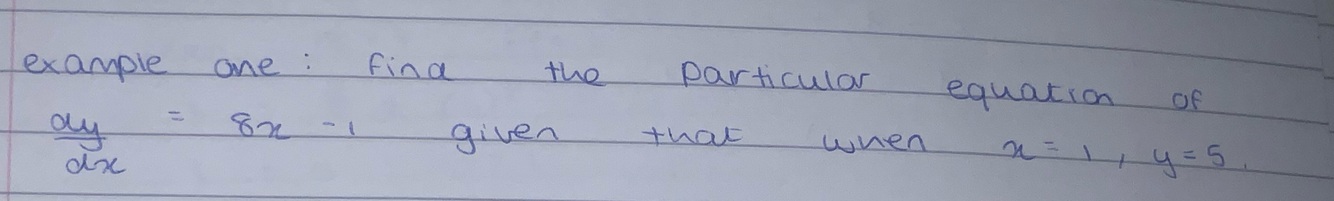 example one: find the particular equation of
dy/dx = 8x - 1 given that when x = 1, y = 5.